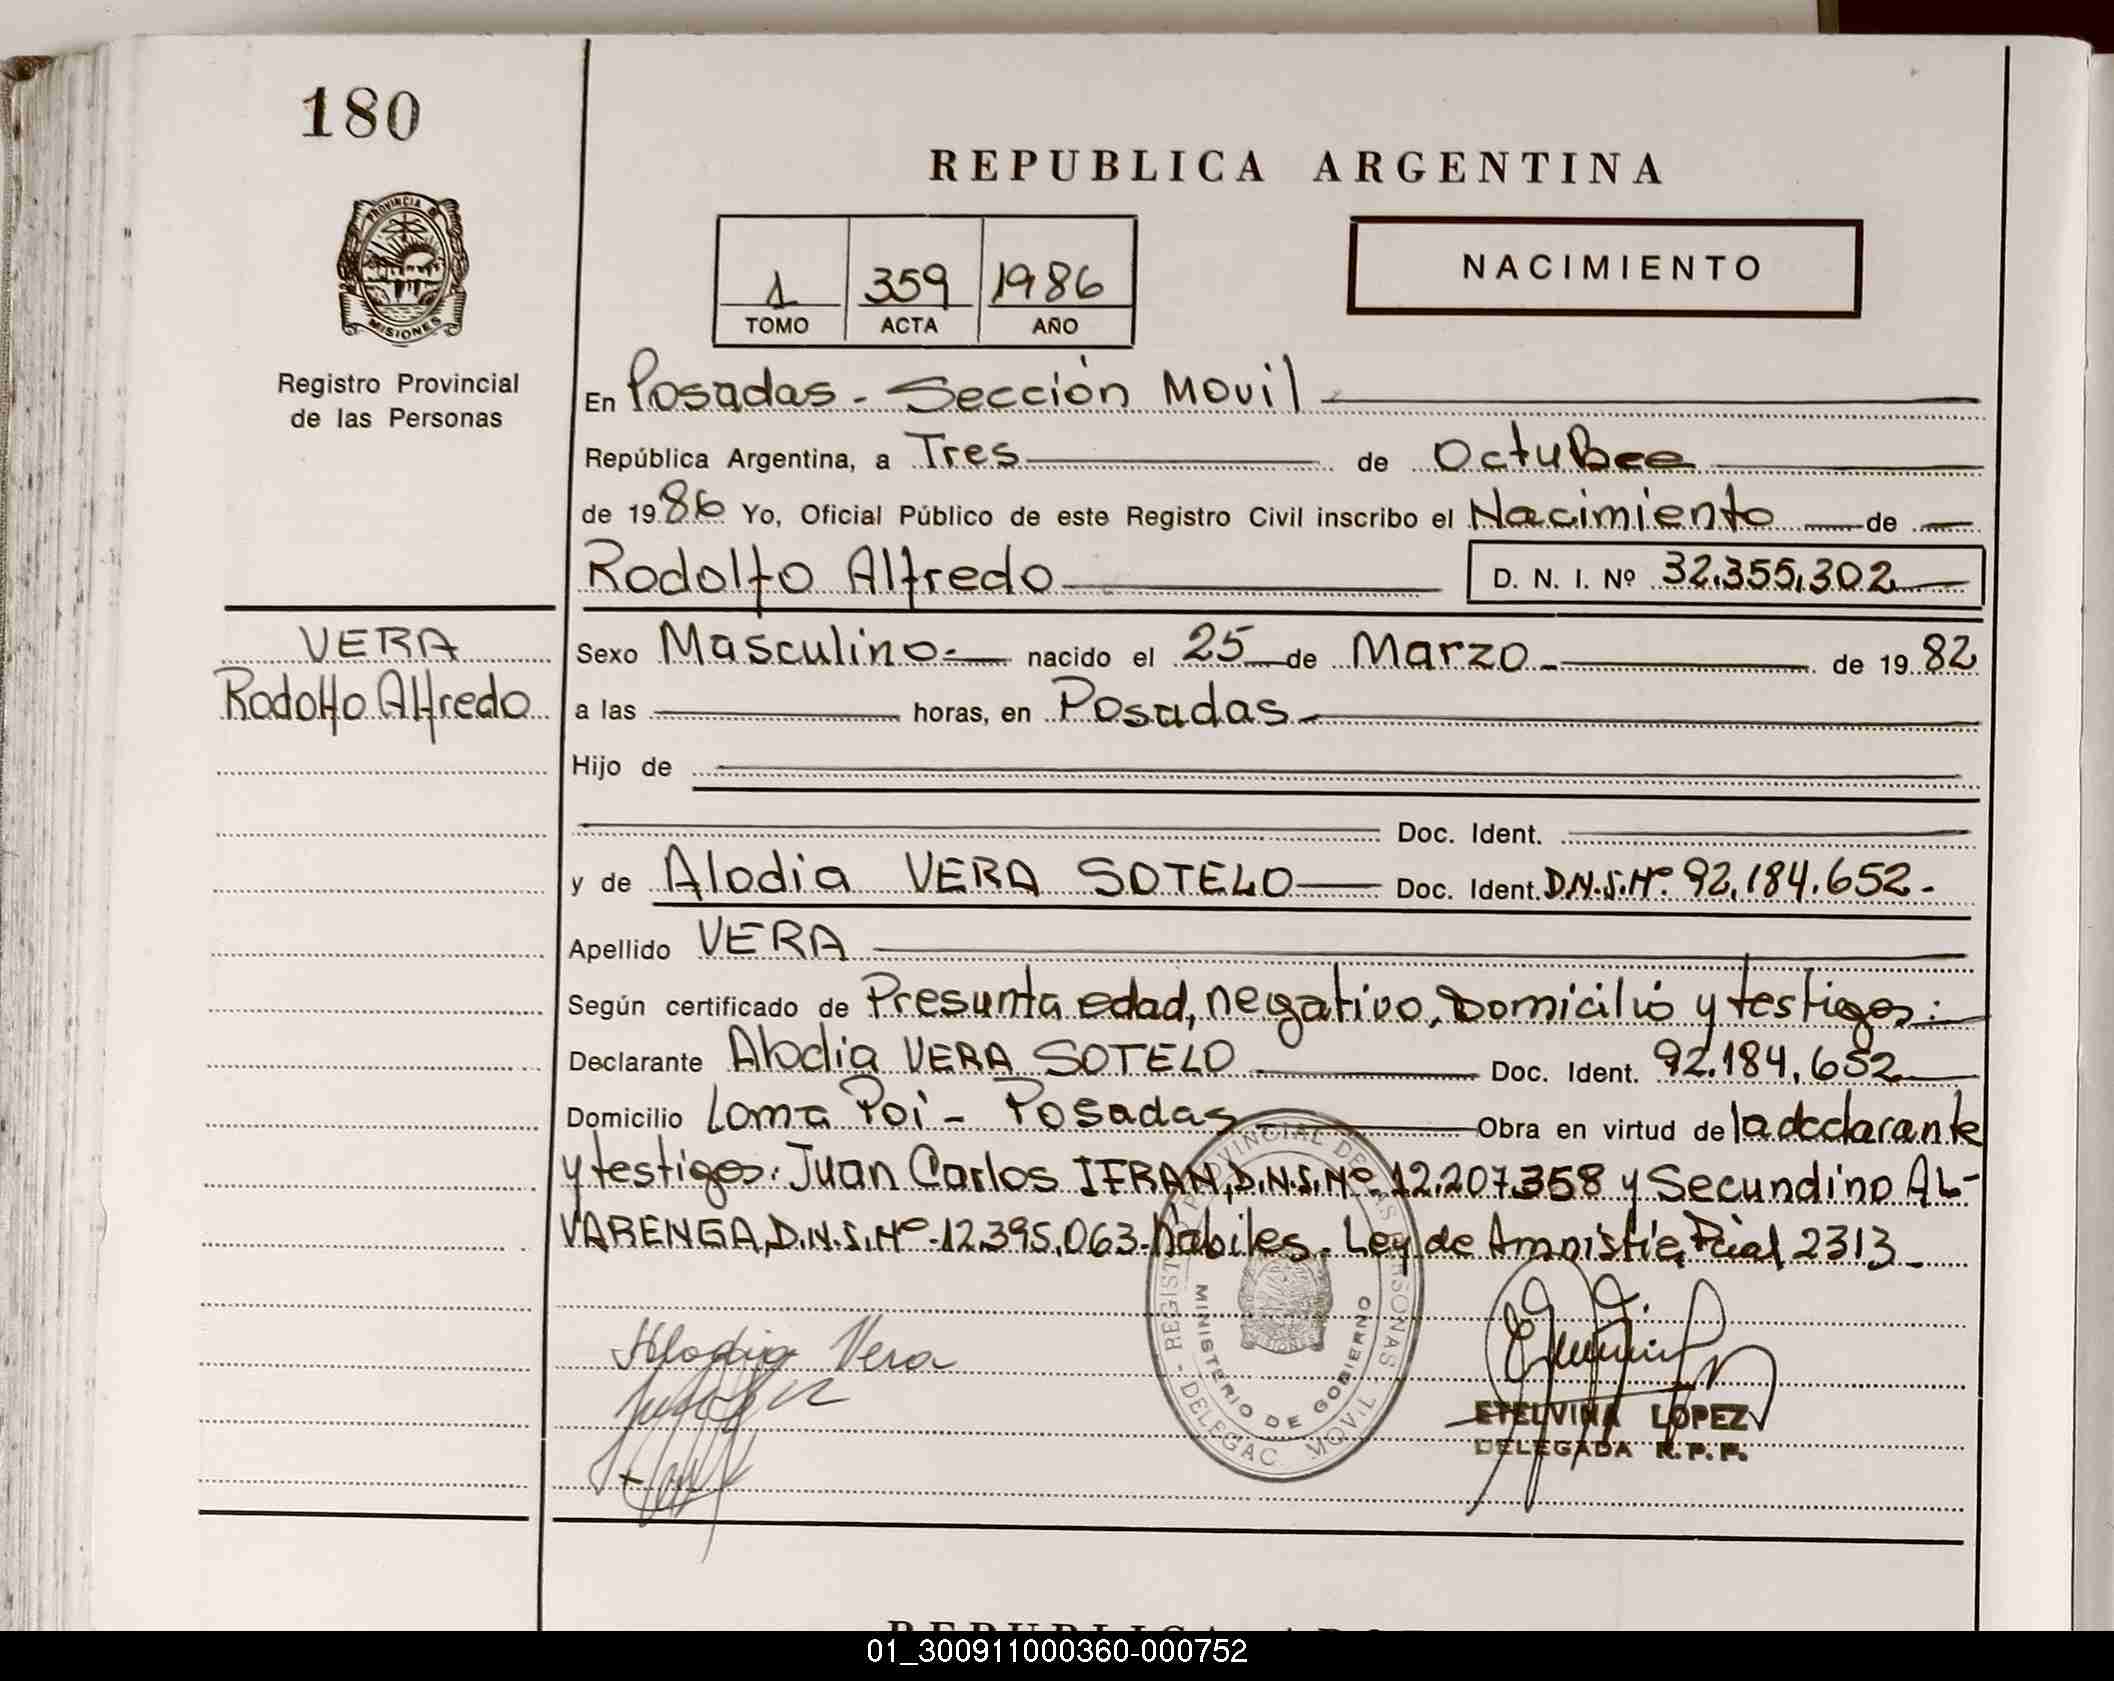 180
REPUBLICA ARGENTINA
PROVINCIA DE
MISIONES
1 359 1986
TOMO ACTA AÑO
NACIMIENTO
Registro Provincial
de las Personas
En Posadas - Sección Movil
República Argentina, a Tres de Octubre
de 1986 Yo, Oficial Público de este Registro Civil inscribo el Nacimiento de
Rodolfo Alfredo D. N. I. Nº 32.355.302
VERA
Rodolfo Alfredo
Sexo Masculino.- nacido el 25 de Marzo.- de 1982
a las horas, en Posadas.-
Hijo de
Doc. Ident.
y de Alodia VERA SOTELO Doc. Ident. D.N.I.Nº. 92.184.652.-
Apellido VERA
Según certificado de Presunta edad, negativo, Domicilio y testigos:
Declarante Alodia VERA SOTELO Doc. Ident. 92.184.652
Domicilio Loma Poi - Posadas Obra en virtud de la declarante
y testigos: Juan Carlos IFRAN, D.N.I.Nº. 12.207.358 y Secundino AL-
VARENGA, D.N.I.Nº. 12.395.063. hábiles. Ley de Amnistía, Pcial 2313.
REGISTRO PROVINCIAL DE LAS PERSONAS - DELEGAC. MOVIL
MINISTERIO DE GOBIERNO
Alodia Vera
ETELVINA LOPEZ
DELEGADA R.P.P.
01_300911000360-000752